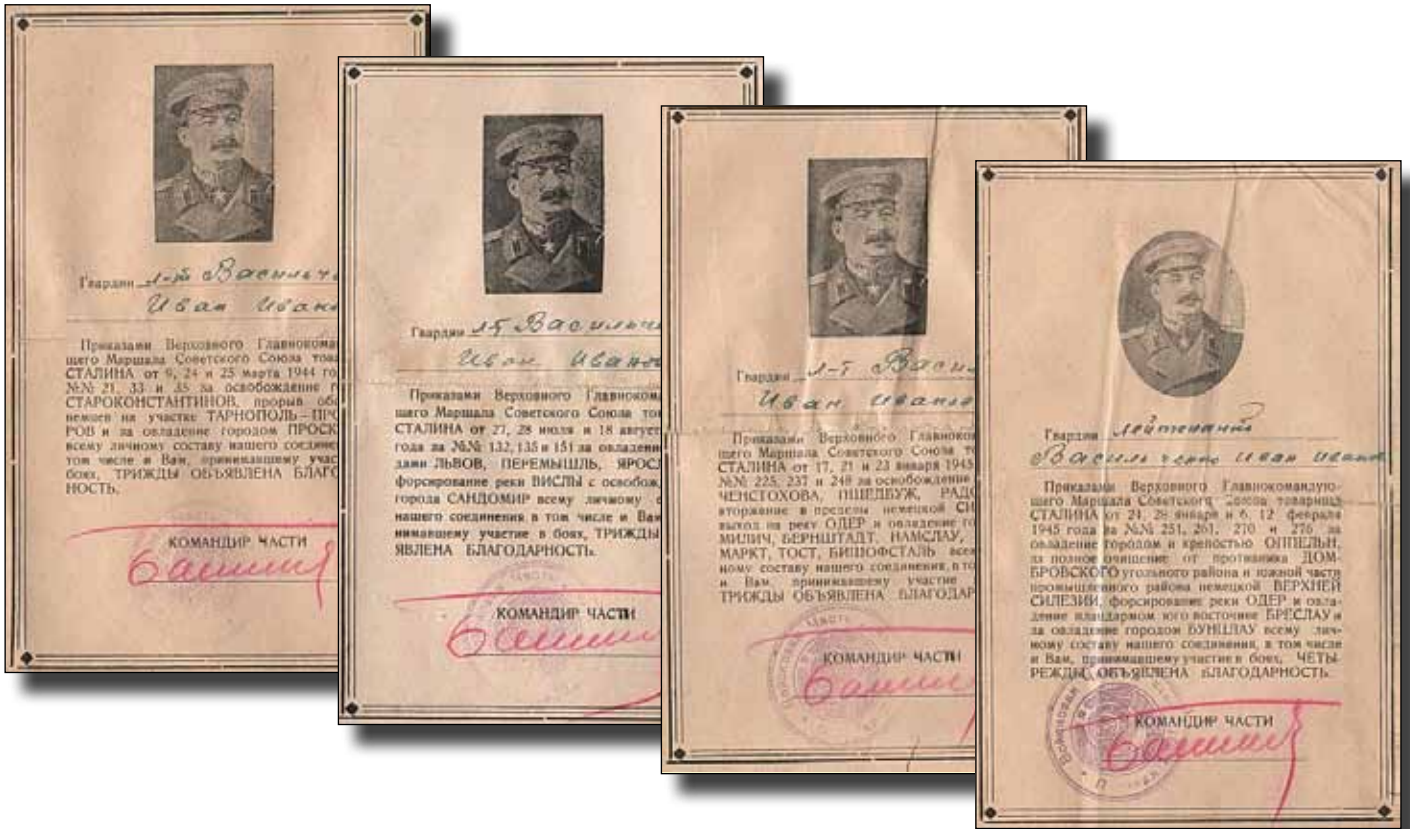 Гвардии л-т Васильче
Иван Иван
Приказами Верховного Главнокоман
щего Маршала Советского Союза това
СТАЛИНА от 9, 24 и 25 марта 1944 го
№№ 21, 33 и 35 за освобождение г
СТАРОКОНСТАНТИНОВ, прорыв обо
немцев на участке ТАРНОПОЛЬ—ПРО
РОВ и за овладение городом ПРОСК
всему личному составу нашего соедине
том числе и Вам, принимавшему учас
боях, ТРИЖДЫ ОБЪЯВЛЕНА БЛАГО
НОСТЬ.
КОМАНДИР ЧАСТИ
Гвардии л-т Васильче
Иван Ивано
Приказами Верховного Главнокома
щего Маршала Советского Союза то
СТАЛИНА от 27, 28 июля и 18 август
года за №№ 132, 135 и 151 за овладени
дами ЛЬВОВ, ПЕРЕМЫШЛЬ, ЯРОСЛ
форсирование реки ВИСЛЫ с освобож
города САНДОМИР всему личному с
нашего соединения в том числе и Вам
нимавшему участие в боях, ТРИЖДЫ
ЯВЛЕНА БЛАГОДАРНОСТЬ.
КОМАНДИР ЧАСТИ
Гвардии л-т Васил
Иван Ивано
Приказами Верховного Главноко
щего Маршала Советского Союза т
СТАЛИНА от 17, 21 и 23 января 1945
№№ 225, 237 и 248 за освобождение
ЧЕНСТОХОВА, ПШЕДБУЖ, РАДО
вторжение в пределы немецкой СИ
выход на реку ОДЕР и овладение го
МИЛИЧ, БЕРНШТАДТ, НАМСЛАУ,
МАРКТ, ТОСТ, БИШОФСТАЛЬ всем
ному составу нашего соединения, в то
и Вам, принимавшему участие
ТРИЖДЫ ОБЪЯВЛЕНА БЛАГОДАР
КОМАНДИР ЧАСТИ
Гвардии лейтенант
Васильченко Иван Иван
Приказами Верховного Главнокомандую-
щего Маршала Советского Союза товарища
СТАЛИНА от 24, 28 января и 6, 12 февраля
1945 года за №№ 251, 261, 270 и 276 за
овладение городом и крепостью ОППЕЛЬН,
за полное очищение от противника ДОМ-
БРОВСКОГО угольного района и южной части
промышленного района немецкой ВЕРХНЕЙ
СИЛЕЗИИ, форсирование реки ОДЕР и овла-
дение плацдармом юго восточнее БРЕСЛАУ и
за овладение городом БУНЦЛАУ всему лич-
ному составу нашего соединения, в том числе
и Вам, принимавшему участие в боях, ЧЕТЫ-
РЕЖДЫ ОБЪЯВЛЕНА БЛАГОДАРНОСТЬ.
КОМАНДИР ЧАСТИ